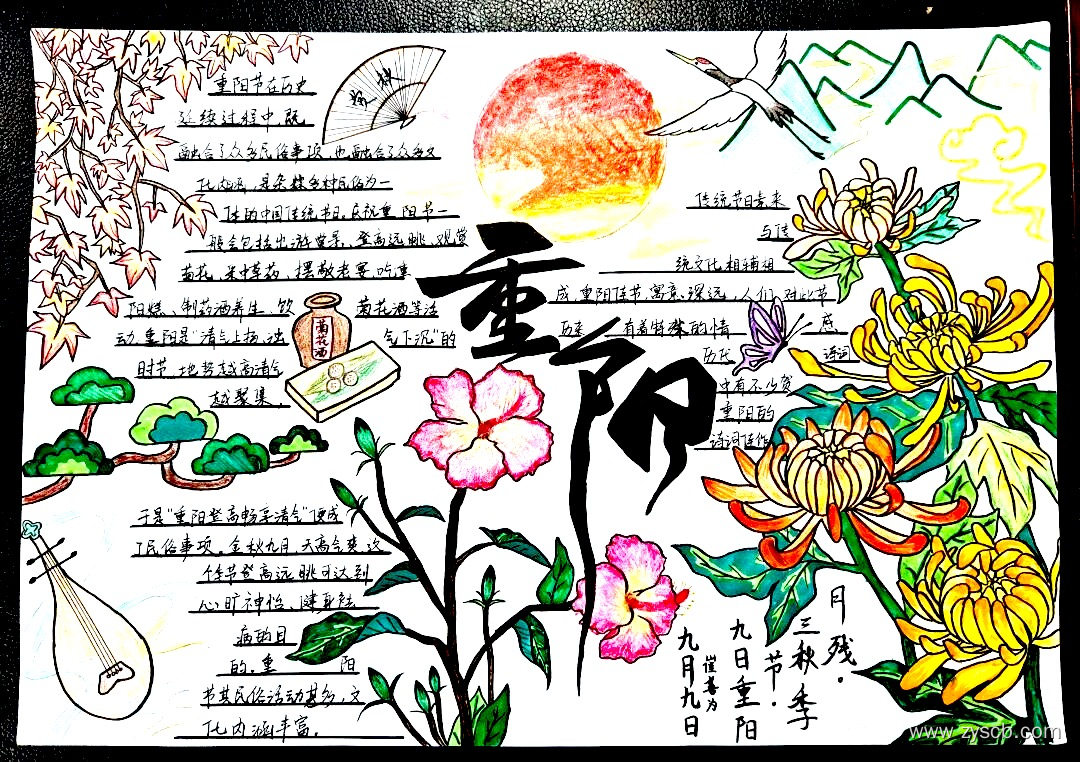 重阳节在历史
延续过程中,既
融合了众多民俗事项,也融合了众多文
化内涵,是杂糅多种民俗为一
体的中国传统节日。庆祝重阳节一
般会包括出游赏景、登高远眺、观赏
菊花、采中草药、摆敬老宴、吃重
阳糕、制药酒养生、饮 菊花酒等活
动。重阳是“清气上扬、浊 气下沉”的
时节,地势越高清气
越聚集,
菊花酒
于是“重阳登高畅享清气”便成
了民俗事项。金秋九月,天高气爽,这
个季节登高远眺可达到
心旷神怡、健身祛
病的目
的。重 阳
节其民俗活动甚多,文
化内涵丰富。
重阳
传统节日素来
与传
统文化相辅相
成,重阳佳节,寓意深远,人们对此节
历来 有着特殊的情 感,
历代 诗词
中有不少贺
重阳的
诗词佳作
月残。
三秋季
节。
九日重阳
九月九日
www.zyscb.com